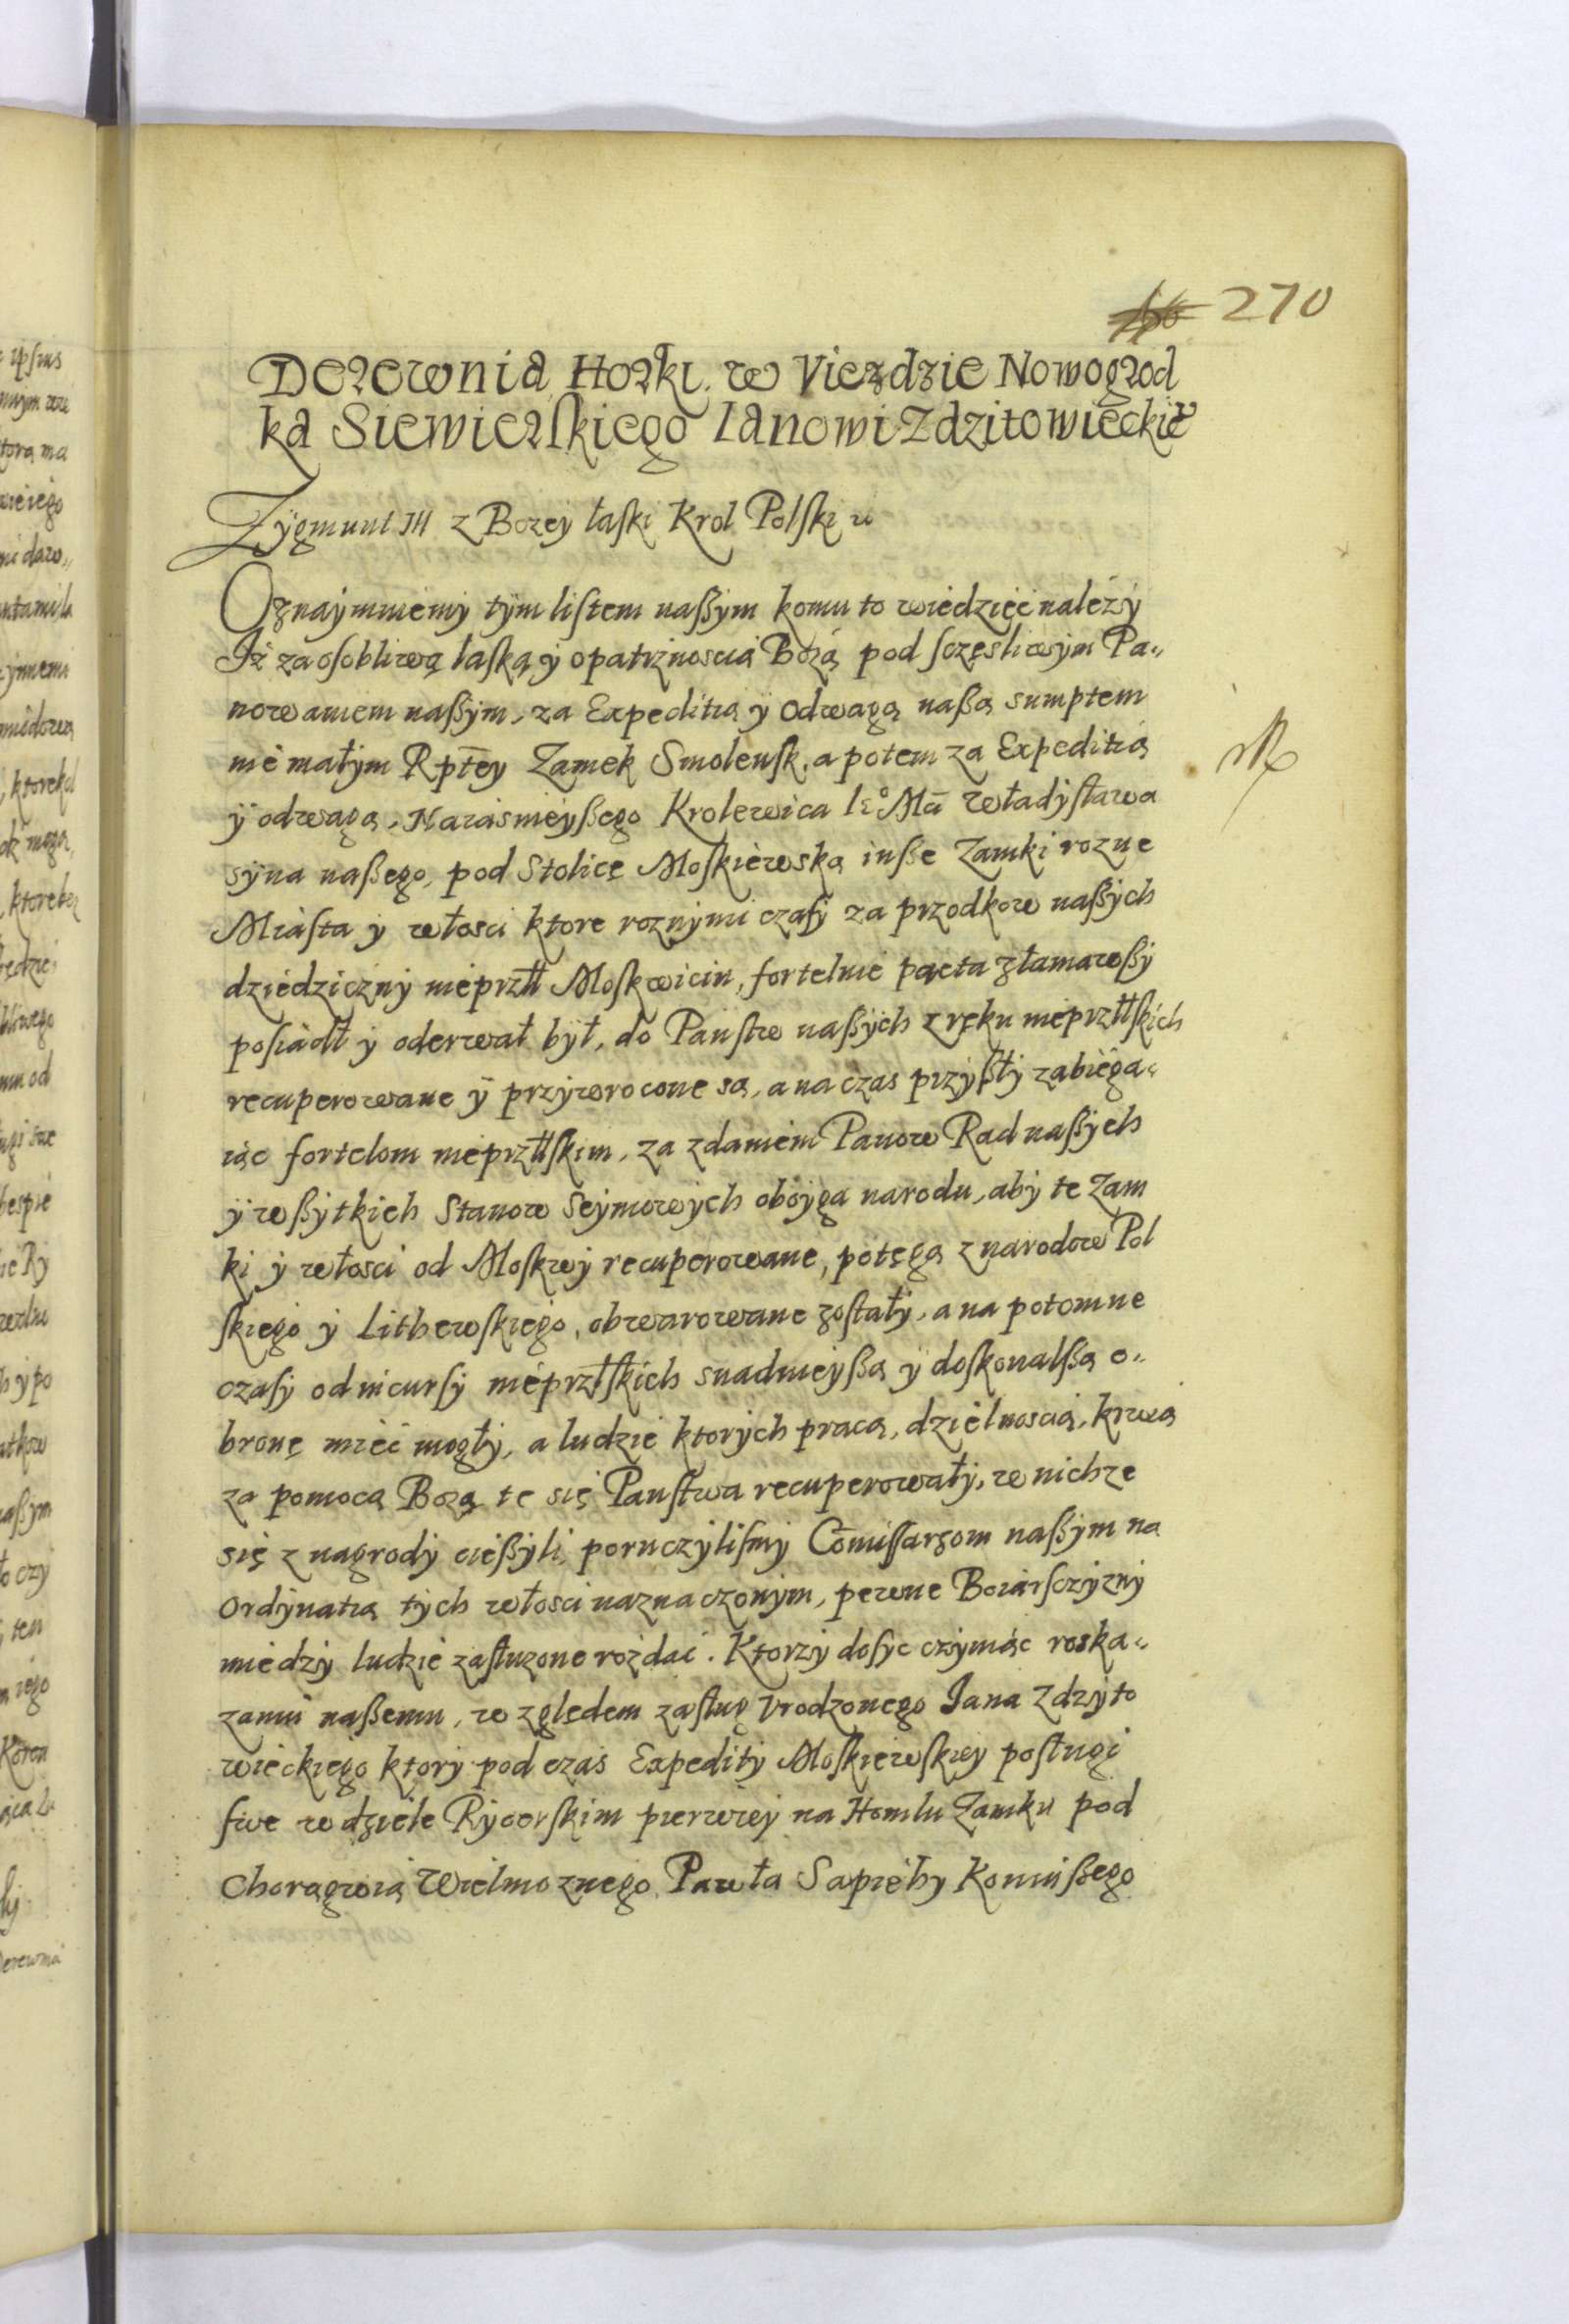 270
Derewnia Horki w Viezdzie Nowogrod
ka Siewierskiego Ianowi Zdzitowieckie
Zygmunt III z Bozey łaski Krol Polski
Oznaymuiemy tym listem naszym komu to wiedzieć należy
Iż za osobliwą łaską y opatrznoscią Bożą pod sczęsliwym Pa„
nowaniem naszym, za Expeditią y odwagą naszą sumptem
nie małym Rptey Zamek Smolensk, a potem za Expeditią
y odwagą, Naiasnieyszego Krolewica Ie° Mci Władysława
syna naszego, pod Stolicę Moskiewską insze Zamki rozne
Miasta y włosci ktore roznymi czasy za przodkow naszych
dziedziczny nieprztl Moskwicin, fortelnie pacta złamawszy
posiadł y oderwał był, do Panstw naszych z ręku nieprztlskich
recuperowane y przywrocone są, a na czas przyszły zabiega„
iąc fortelom nieprztlskim, za zdaniem Panow Rad naszych
y wszytkich Stanow Seymowych oboyga narodu, aby te Zam
ki y włosci od Moskwy recuperowane, potęgą z narodow Pol
skiego y Lithewskiego, obwarowane zostały, a na potomne
czasy od incursy nieprztlskich snadnieyszą y doskonalszą o„
bronę mieć mogły, a ludzie ktorych pracą, dzielnoscią, krwią
za pomocą Bożą te się Panstwa recuperowały, w nichze
się z nagrody cieszyli, poruczylismy Comissarzom naszym na
ordynatią tych włosci naznaczonym, pewne Boiarsczyzny
miedzy ludzie zasłuzone rozdać. Ktorzy dosyc czyniąc roska„
zaniu naszemu, w zględem zasług Vrodzonego Jana Zdzyto
wieckiego ktory pod czas Expedity Moskiewskiey posługi
swe w dziele Rycerskim pierwiey na Homlu Zamku pod
Chorągwią Wielmoznego Pawła Sapiehy Koniuszego